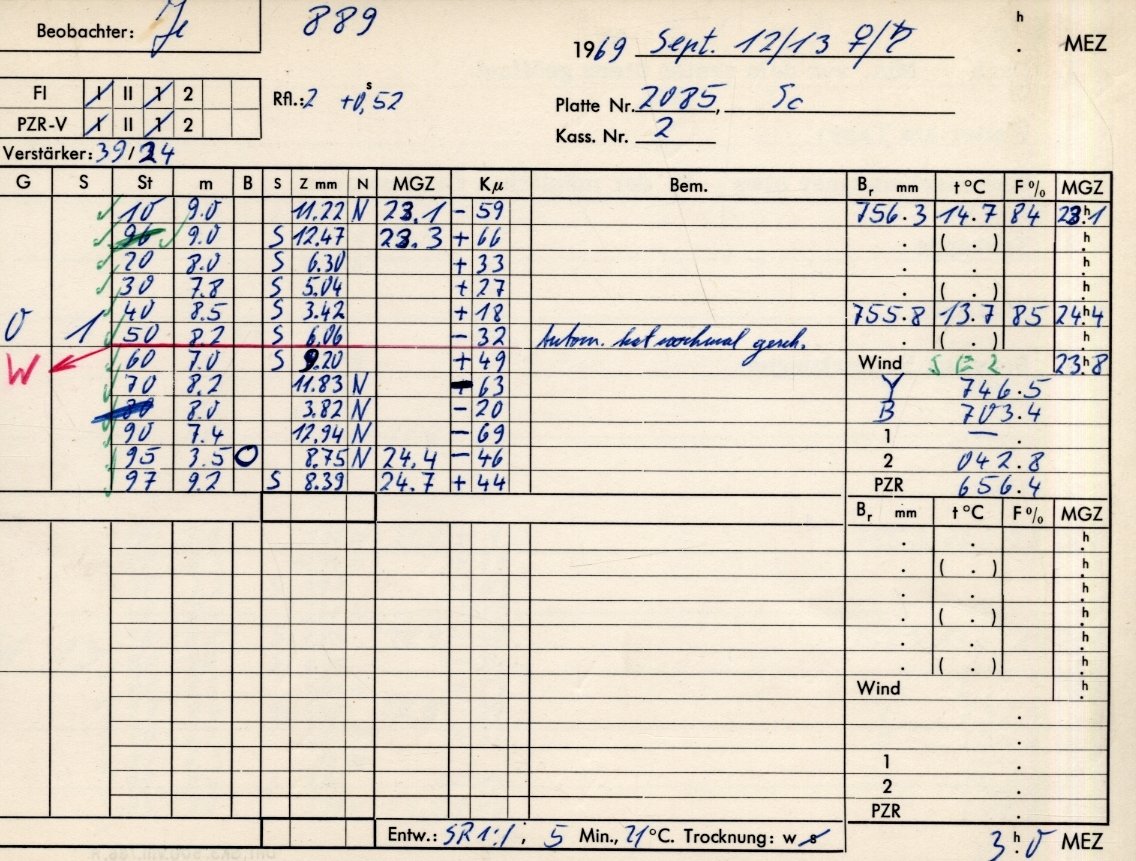 Beobachter: Je 889
1969 Sept. 12/13 ♀/♄ h . MEZ
FI I II 1 2
PZR-V I II 1 2
Rfl.: 2 +0,s52
Platte Nr. 2085, Sc
Kass. Nr. 2
Verstärker: 39/24
G S St m B S Z mm N MGZ Kμ Bem. Br mm t°C F% MGZ
10 9.0 11.22 N 23.1 - 59 756.3 14.7 84 23h.1
96 9.0 S 12.47 23.3 + 66 . ( . ) h.
20 8.0 S 6.30 + 33 . . h.
30 7.8 S 5.04 + 27 . ( . ) h.
40 8.5 S 3.42 + 18 755.8 13.7 85 24h.4
0 1 50 8.2 S 6.06 - 32 Autom. hat nochmal gesch. . ( . ) h.
W 60 7.0 S 9.20 + 49 Wind SE 2 23h.8
70 8.2 11.83 N - 63 Y 746.5
80 8.0 3.82 N - 20 B 703.4
90 7.4 12.94 N - 69 1 — .
95 3.5 O 8.75 N 24.4 - 46 2 042.8
97 9.2 S 8.39 24.7 + 44 PZR 656.4
Br mm t°C F% MGZ
. . h.
. ( . ) h.
. . h.
. ( . ) h.
. . h.
. ( . ) h.
Wind h.
.
.
1 .
2 .
PZR .
Entw.: SR 1:1, 5 Min., 21°C. Trocknung: w s
3h.0 MEZ